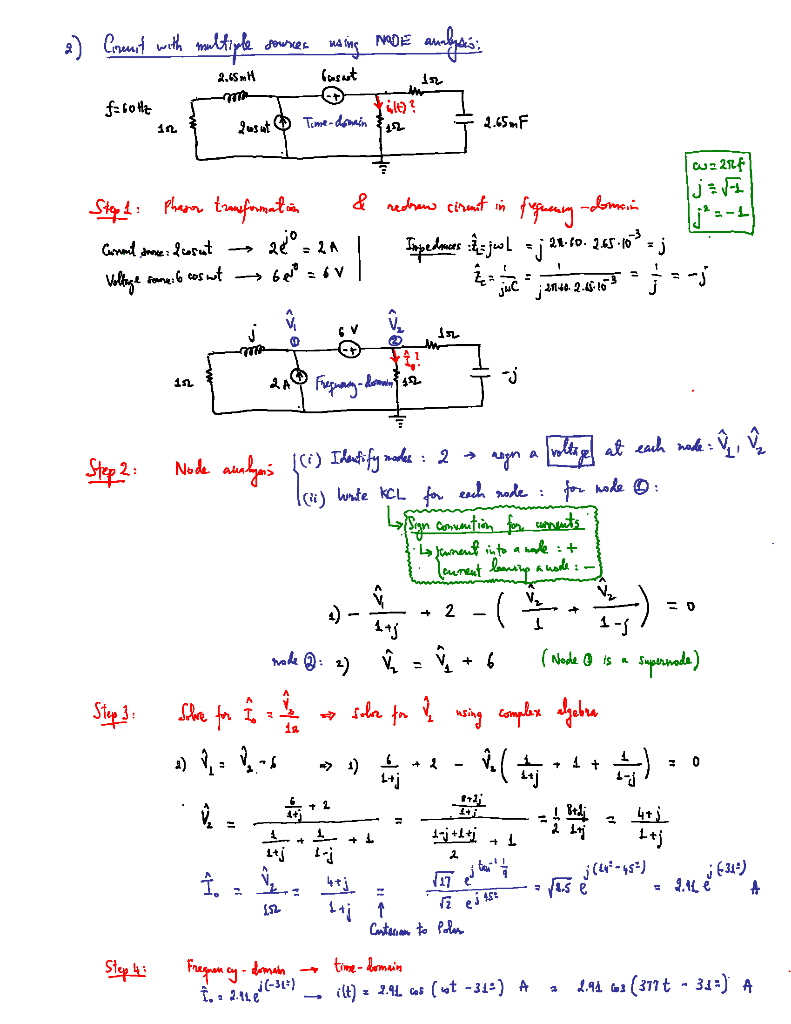 2) Circuit with multiple sources using NODE analysis:
2.65mH 6cosωt 1Ω
f=60Hz
i₀(t)?
1Ω 2cosωt Time-domain 1Ω 2.65mF
ω=2πf
j=√-1
j²=-1
Step 1: Phasor transformation & redraw circuit in frequency-domain
Current source: 2cosωt → 2e^{j0} = 2A
Voltage source: 6 cosωt → 6e^{j0} = 6 V
Impedances: Ẑ_L = jωL = j 2π·60·2.65·10⁻³ = j
Ẑ_C = 1/(jωC) = 1/(j 2π·60·2.65·10⁻³) = 1/j = -j
j V̂₁ 6 V V̂₂ 1Ω
① ②
Î₀?
1Ω 2A Frequency-domain 1Ω -j
Step 2: Node analysis (i) Identify nodes: 2 → assign a voltage at each node: V̂₁, V̂₂
(ii) Write KCL for each node: for node ①:
Sign convention for currents
current into a node: +
current leaving a node: -
1) - V̂₁/(1+j) + 2 - (V̂₂/1 + V̂₂/(1-j)) = 0
node ②: 2) V̂₂ = V̂₁ + 6 (Node ① is a supernode)
Step 3: Solve for Î₀ = V̂₂/1Ω ⇒ solve for V̂₂ using complex algebra
2) V̂₁ = V̂₂ - 6 ⇒ 1) 6/(1+j) + 2 - V̂₂(1/(1+j) + 1 + 1/(1-j)) = 0
V̂₂ = (6/(1+j) + 2)/(1/(1+j) + 1/(1-j) + 1) = ((8+2j)/(1+j))/((1-j+1+j)/2 + 1) = 1/2 (8+2j)/(1+j) = (4+j)/(1+j)
Î₀ = V̂₂/1Ω = (4+j)/(1+j) = (√17 e^{j tan⁻¹ 1/4})/(√2 e^{j45°}) = √8.5 e^{j(14°-45°)} = 2.91 e^{j(-31°)} A
Cartesian to Polar
Step 4: Frequency-domain → time-domain
Î₀ = 2.91e^{j(-31°)} → i(t) = 2.91 cos(ωt - 31°) A = 2.91 cos(377t - 31°) A